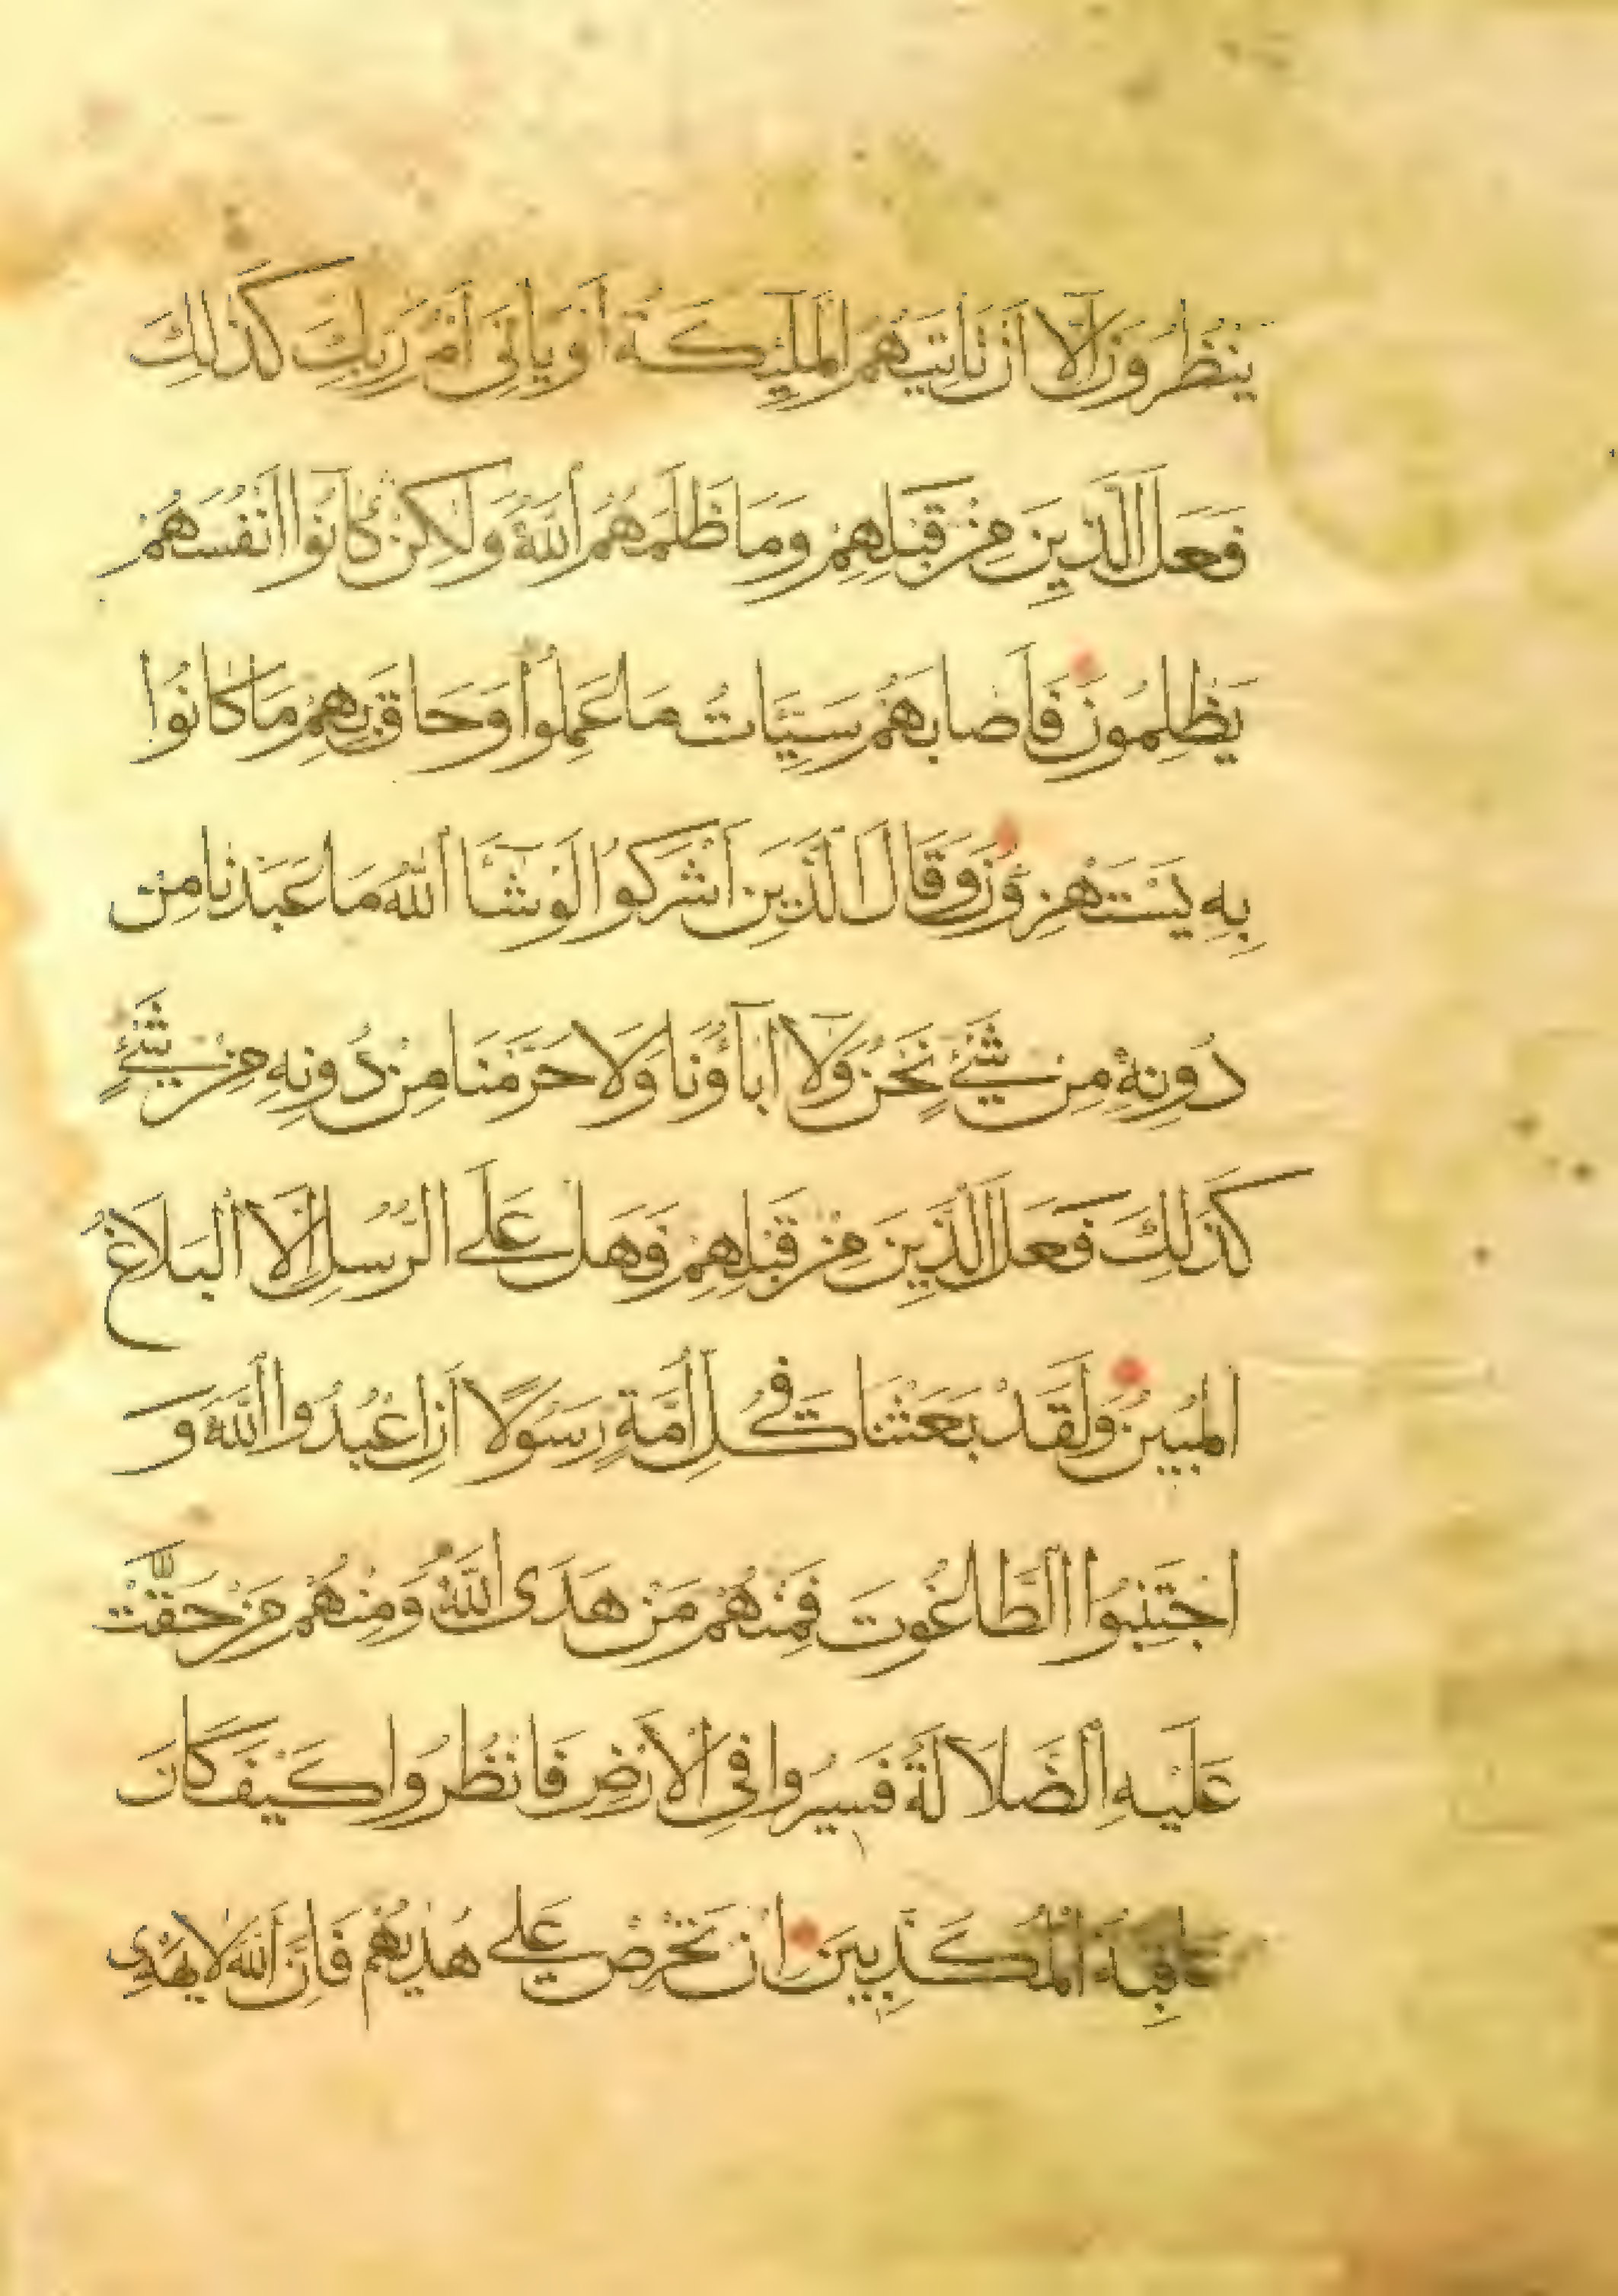 يَنْظُرُونَ إِلَّا أَنْ تَأْتِيَهُمُ الْمَلَٰئِكَةُ أَوْ يَأْتِيَ أَمْرُ رَبِّكَ كَذَٰلِكَ
فَعَلَ الَّذِينَ مِنْ قَبْلِهِمْ وَمَا ظَلَمَهُمُ اللَّهُ وَلَٰكِنْ كَانُوا أَنْفُسَهُمْ
يَظْلِمُونَ فَأَصَابَهُمْ سَيِّئَاتُ مَا عَمِلُوا وَحَاقَ بِهِمْ مَا كَانُوا
بِهِ يَسْتَهْزِؤُنَ وَقَالَ الَّذِينَ أَشْرَكُوا لَوْ شَاءَ اللَّهُ مَا عَبَدْنَا مِنْ
دُونِهِ مِنْ شَيْءٍ نَحْنُ وَلَا آبَاؤُنَا وَلَا حَرَّمْنَا مِنْ دُونِهِ مِنْ شَيْءٍ
كَذَٰلِكَ فَعَلَ الَّذِينَ مِنْ قَبْلِهِمْ فَهَلْ عَلَى الرُّسُلِ إِلَّا الْبَلَاغُ
الْمُبِينُ وَلَقَدْ بَعَثْنَا فِي كُلِّ أُمَّةٍ رَسُولًا أَنِ اعْبُدُوا اللَّهَ وَ
اجْتَنِبُوا الطَّاغُوتَ فَمِنْهُمْ مَنْ هَدَى اللَّهُ وَمِنْهُمْ مَنْ حَقَّتْ
عَلَيْهِ الضَّلَالَةُ فَسِيرُوا فِي الْأَرْضِ فَانْظُرُوا كَيْفَ كَانَ
عَاقِبَةُ الْمُكَذِّبِينَ إِنْ تَحْرِصْ عَلَى هُدَيٰهُمْ فَإِنَّ اللَّهَ لَا يَهْدِي